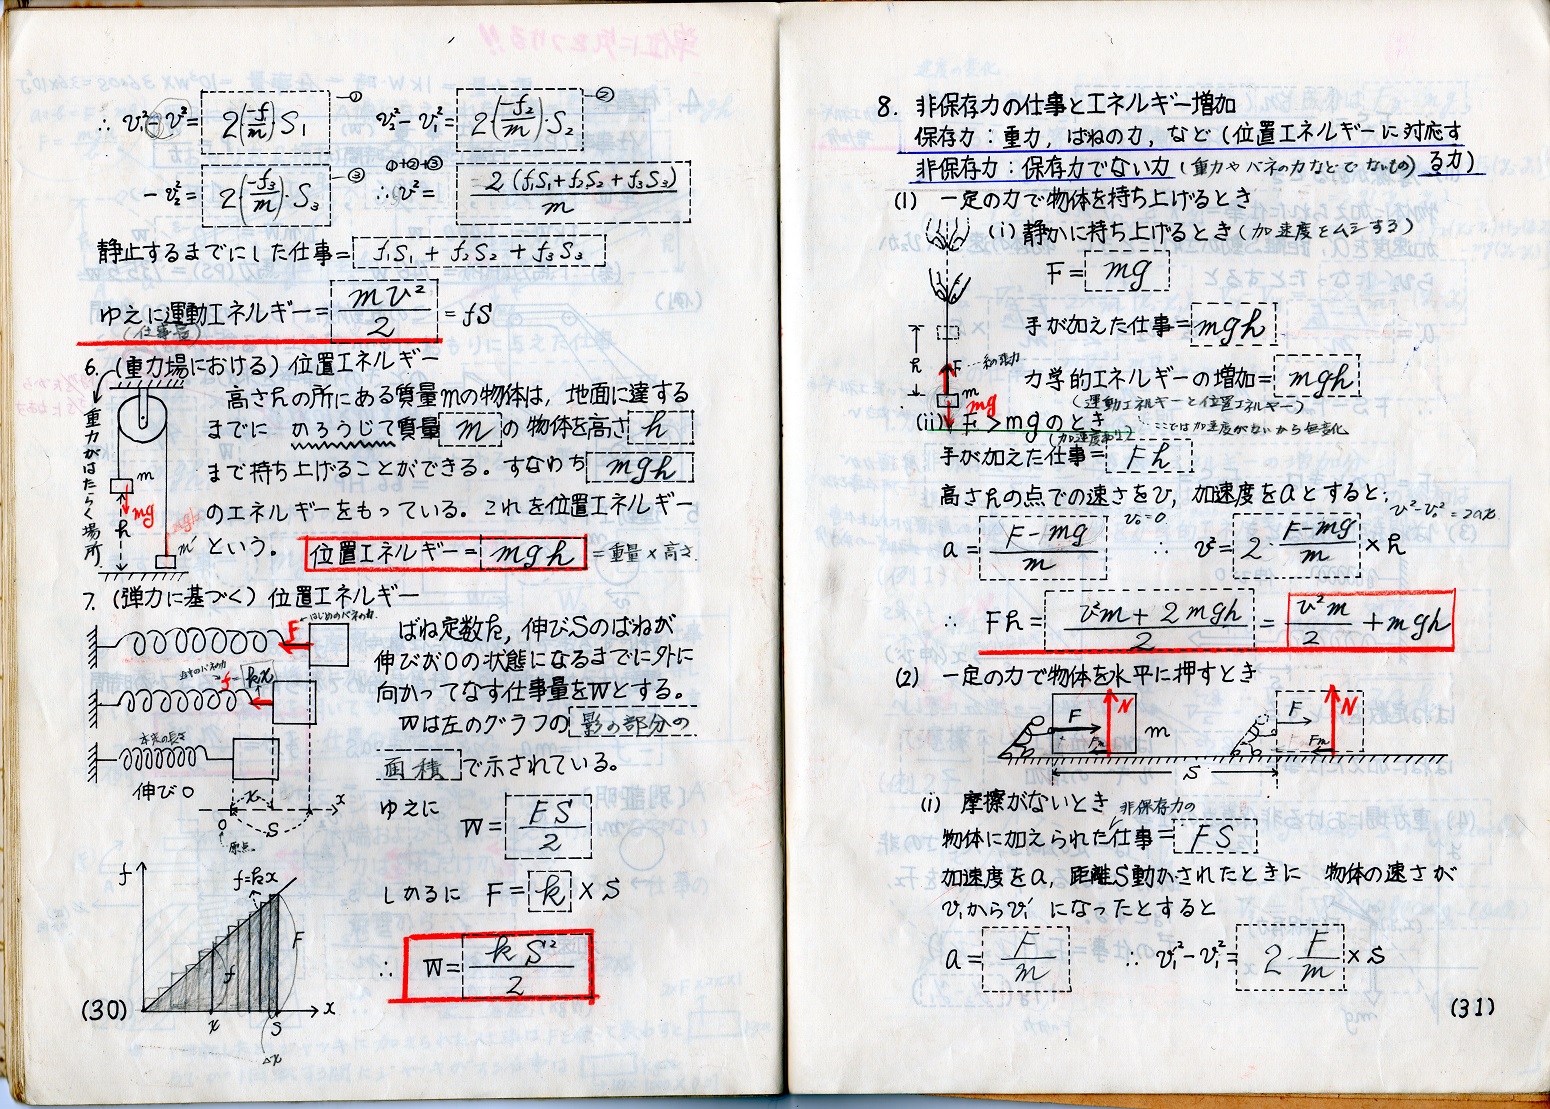 ∴ v₂² - v² = 2(-f/m)S₁ ―① v₂² - v₁² = 2(-f₂/m)·S₂ ―②
- v₂² = 2(-f₃/m)·S₃ ―③ ①+②+③ ∴ v² = 2(f₁S₁+f₂S₂+f₃S₃)/m
静止するまでにした仕事= f₁S₁ + f₂S₂ + f₃S₃
ゆえに運動エネルギー= mv²/2 = fS
(仕事量)
6. (重力場における) 位置エネルギー
重力がはたらく場所
高さhの所にある質量mの物体は, 地面に達する
までに かろうじて質量 m の物体を高さ h
まで持ち上げることができる. すなわち mgh
のエネルギーをもっている. これを位置エネルギー
という. 位置エネルギー= mgh =重量×高さ
m
mg
h
m'
7. (弾力に基づく) 位置エネルギー
F ←はじめのバネの力
f=kx
本来の長さ
伸び0
x
S
x
O
原点
ばね定数k, 伸びSのばねが
伸びが0の状態になるまでに外に
向かってなす仕事量をWとする.
Wは左のグラフの 影の部分の
面積 で示されている.
ゆえに W= FS/2
しかるに F= k ×S
∴ W= kS²/2
f
f=kx
F
f
x
S
x
Δx
(30)
8. 非保存力の仕事とエネルギー増加
保存力: 重力, ばねの力, など (位置エネルギーに対応す
非保存力: 保存力でない力 (重力やバネの力などでないもの) る力)
(1) 一定の力で物体を持ち上げるとき
(i) 静かに持ち上げるとき (加速度をムシする)
F= mg
手が加えた仕事= mgh
力学的エネルギーの増加= mgh
(運動エネルギーと位置エネルギー)
ここでは加速度がないから無変化
h
F
m
mg
(ii) F>mgのとき
(加速度あり)
手が加えた仕事= Fh
高さhの点での速さをv, 加速度をaとすると,
v₀=0 v²-v₀²=2ax
a= F-mg/m ∴ v²= 2·F-mg/m ×h
∴ Fh= v²m+2mgh/2 = v²m/2 +mgh
(2) 一定の力で物体を水平に押すとき
F N m F N
S
(i) 摩擦がないとき 非保存力の
物体に加えられた仕事= FS
加速度をa, 距離S動かされたときに 物体の速さが
v₁からv₁' になったとすると
a= F/m ∴ v₁'²-v₁²= 2·F/m ×S
(31)